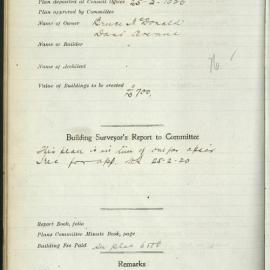 Plan deposited at Council Offices 25-2-1920
Plan approved by Committee
Name of Owner Bruce & Donald
Name of Builder
No.
Name of Architect
Value of Buildings to be erected
£700
Building Surveyor's Report to Committee
This plan is in lieu of
for app. 25-2-20
Report Book, folio
Plans Committee Minute Book, page
Building Fee Paid
Remarks